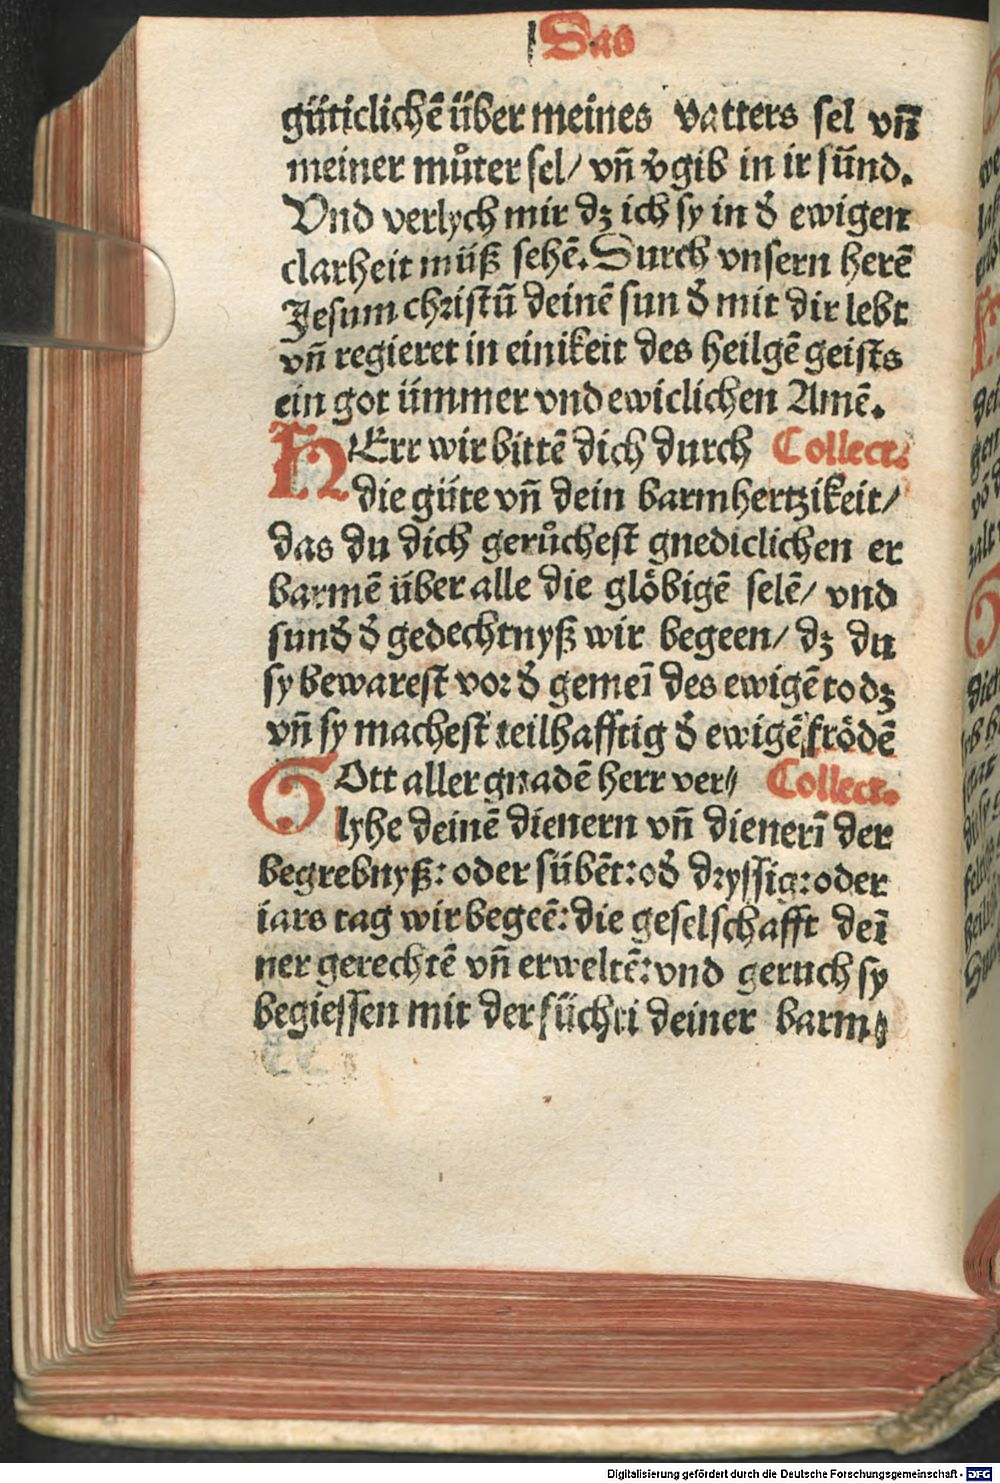 Das
güticlichē über meines vatters sel vñ
meiner můter sel/ vñ v̄gib in ir sünd.
Vnd verlych mir dz ich sy in d̄ ewigen
clarheit müß sehē. Durch vnsern herē
Jesum christū deinē sun d̄ mit dir lebt
vñ regieret in einikeit des heilgē geists
ein got ümmer vnd ewiclichen Amē.
HErr wir bittē dich durch Collect.
die güte vñ dein barmhertzikeit/
das du dich gerůchest gnediclichen er
barmē über alle die glöbigē selē/ vnd
sund̄ d̄ gedechtnyß wir begeen/ dz du
sy bewarest vor d̄ gemeī des ewigē todz
vñ sy machest teilhafftig d̄ ewigē frödē
GOtt aller gnadē herr ver⸗ Collect.
lyhe deinē dienern vñ dienerī der
begrebnyß: oder sübēt: od̄ dryssig: oder
iars tag wir begeē: die geselschafft deī
ner gerechtē vñ erweltē: vnd geruch sy
begiessen mit der füchti deiner barm⸗
Digitalisierung gefördert durch die Deutsche Forschungsgemeinschaft - DFG